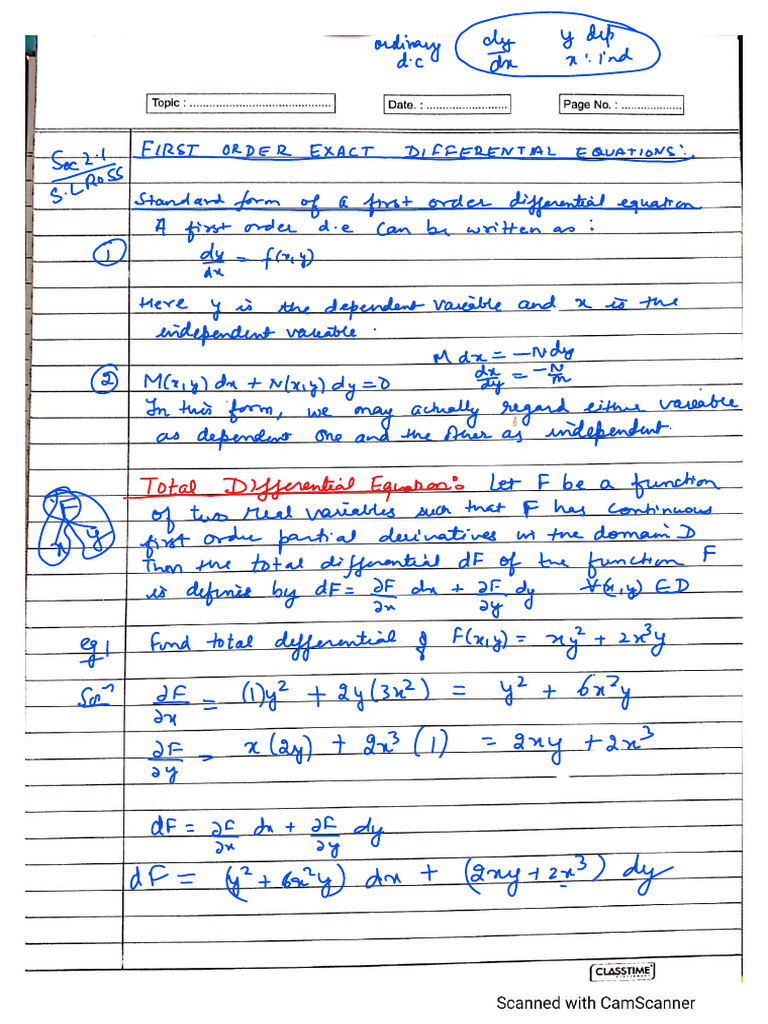 ordinary dy/dx y dep
d.e x : ind
Topic : ............................................
Date. : .........................
Page No. : ...................
Sec 2.1
S.L ROSS
FIRST ORDER EXACT DIFFERENTIAL EQUATIONS:.
Standard form of a first order differential equation
A first order d.e can be written as :
① dy/dx = f(x,y)
Here y is the dependent variable and x is the
independent variable.
M dx = -N dy
② M(x,y) dx + N(x,y) dy = 0 dx/dy = -N/M
In this form, we may actually regard either variable
as dependent one and the other as independent.
Total Differential Equation: Let F be a function
of two real variables such that F has continuous
first order partial derivatives in the domain D
Then the total differential dF of the function F
is defined by dF = ∂F/∂x dx + ∂F/∂y dy ∀(x,y) ∈ D
F
x y
eg 1 Find total differential of F(x,y) = xy² + 2x³y
Sol→ ∂F/∂x = (1)y² + 2y(3x²) = y² + 6x²y
∂F/∂y = x(2y) + 2x³(1) = 2xy + 2x³
dF = ∂F/∂x dx + ∂F/∂y dy
dF = (y² + 6x²y) dx + (2xy + 2x³) dy
CLASSTIME
Scanned with CamScanner